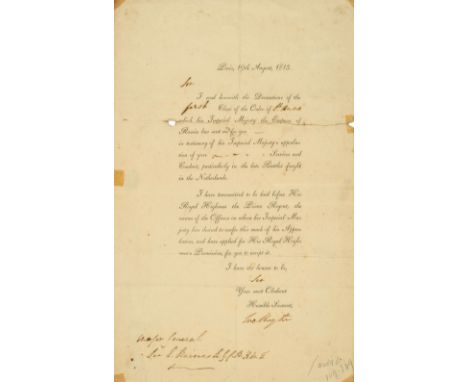 Paris, 19th August, 1815.
Sir
I send herewith the Decorations of the
first Class of the Order of St Anne
which his Imperial Majesty the Emperor of
Russia has sent for you
in testimony of his Imperial Majesty's approba-
tion of your Services and
Conduct, particularly in the late Battles fought
in the Netherlands.
I have transmitted to be laid before His
Royal Highness the Prince Regent, the
names of the Officers on whom his Imperial Ma-
jesty has desired to confer this mark of his Appro-
bation, and have applied for His Royal High-
ness's Permission, for you to accept it.
I have the honour to be,
Sir
Your most Obedient
Humble Servant,
Major General
Sir